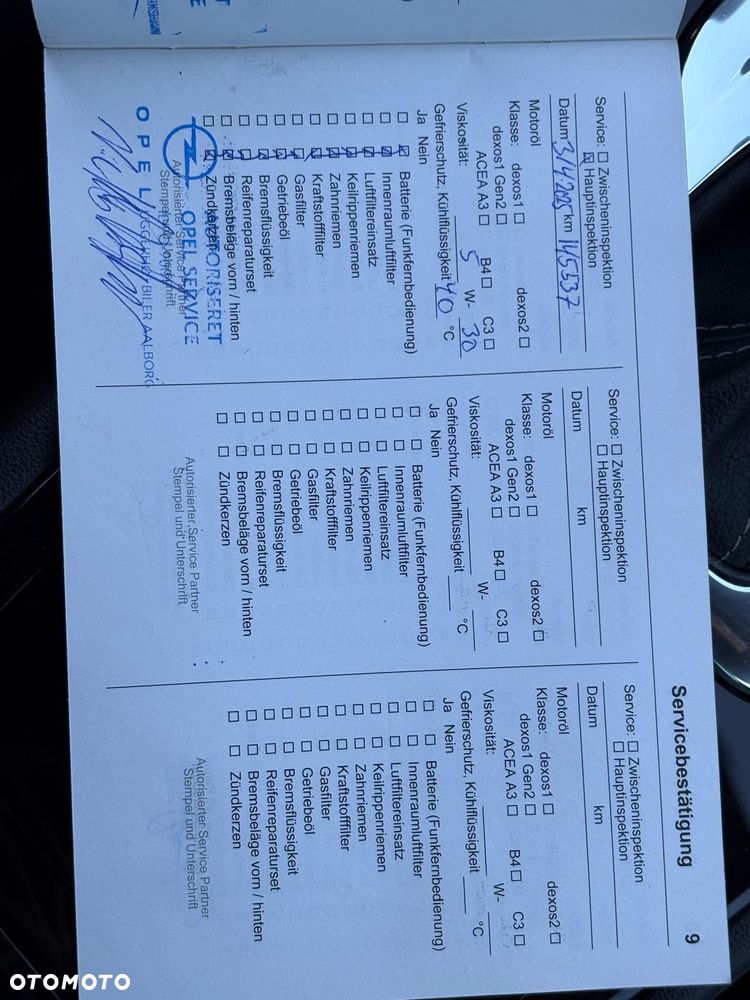 Servicebestätigung 9
Service: ☐ Zwischeninspektion
☒ Hauptinspektion
Datum 3/4 2025 km 115337
Motoröl
Klasse: dexos1 ☐ dexos2 ☐
dexos1 Gen2 ☐
ACEA A3 ☐ B4 ☐ C3 ☐
Viskosität: 5 W- 30
Gefrierschutz, Kühlflüssigkeit 40 °C
Ja Nein
☐ ☒ Batterie (Funkfernbedienung)
☐ ☒ Innenraumluftfilter
☐ ☒ Luftfiltereinsatz
☐ ☒ Keilrippenriemen
☐ ☒ Zahnriemen
☐ ☒ Kraftstofffilter
☐ ☒ Gasfilter
☐ ☒ Getriebeöl
☐ ☒ Bremsflüssigkeit
☐ ☒ Reifenreparaturset
☐ ☒ Bremsbeläge vorn / hinten
☐ ☒ Zündkerzen
Autorisierter Service Partner
Stempel und Unterschrift
AUTORISERET
OPEL SERVICE
OPEL
BILER AALBORG
Service: ☐ Zwischeninspektion
☐ Hauptinspektion
Datum km
Motoröl
Klasse: dexos1 ☐ dexos2 ☐
dexos1 Gen2 ☐
ACEA A3 ☐ B4 ☐ C3 ☐
Viskosität: W-
Gefrierschutz, Kühlflüssigkeit °C
Ja Nein
☐ ☐ Batterie (Funkfernbedienung)
☐ ☐ Innenraumluftfilter
☐ ☐ Luftfiltereinsatz
☐ ☐ Keilrippenriemen
☐ ☐ Zahnriemen
☐ ☐ Kraftstofffilter
☐ ☐ Gasfilter
☐ ☐ Getriebeöl
☐ ☐ Bremsflüssigkeit
☐ ☐ Reifenreparaturset
☐ ☐ Bremsbeläge vorn / hinten
☐ ☐ Zündkerzen
Autorisierter Service Partner
Stempel und Unterschrift
Service: ☐ Zwischeninspektion
☐ Hauptinspektion
Datum km
Motoröl
Klasse: dexos1 ☐ dexos2 ☐
dexos1 Gen2 ☐
ACEA A3 ☐ B4 ☐ C3 ☐
Viskosität: W-
Gefrierschutz, Kühlflüssigkeit °C
Ja Nein
☐ ☐ Batterie (Funkfernbedienung)
☐ ☐ Innenraumluftfilter
☐ ☐ Luftfiltereinsatz
☐ ☐ Keilrippenriemen
☐ ☐ Zahnriemen
☐ ☐ Kraftstofffilter
☐ ☐ Gasfilter
☐ ☐ Getriebeöl
☐ ☐ Bremsflüssigkeit
☐ ☐ Reifenreparaturset
☐ ☐ Bremsbeläge vorn / hinten
☐ ☐ Zündkerzen
Autorisierter Service Partner
Stempel und Unterschrift
OTOMOTO